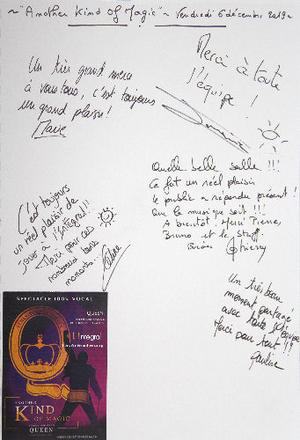 ~ "Another Kind Of Magic" ~ Vendredi 6 décembre 2019 ~
Merci à toute
l'équipe !
Un très grand merci
à vous tous, c'est toujours
un grand plaisir !
Quelle belle salle !!!
Ce fut un réel plaisir
le public a répondu présent !
Que la musique soit !!!
A bientôt Henri Pierre
Bruno et le staff.
Thierry
C'est toujours
un réel plaisir de
jouer à l'intégral !!
Merci pour ces
nombreux bons
moments.
Un très beau
moment partagé
avec toute l'équipe
Merci pour tout !!
Pauline
SPECTACLE 100% VOCAL
QUEEN
L'Integral
ANOTHER
KIND
OF MAGIC
QUEEN